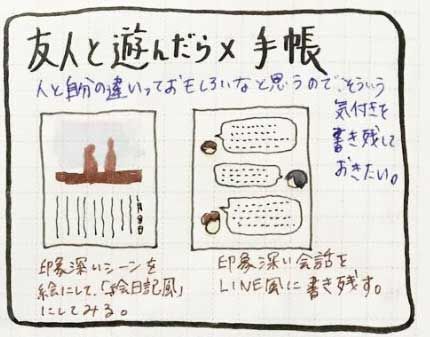 友人と遊んだら×手帳
人と自分の違いっておもしろいなと思うので、そういう
気付きを
書き残して
おきたい。
印象深いシーンを
絵にして、「絵日記風」
にしてみる。
印象深い会話を
LINE風に書き残す。